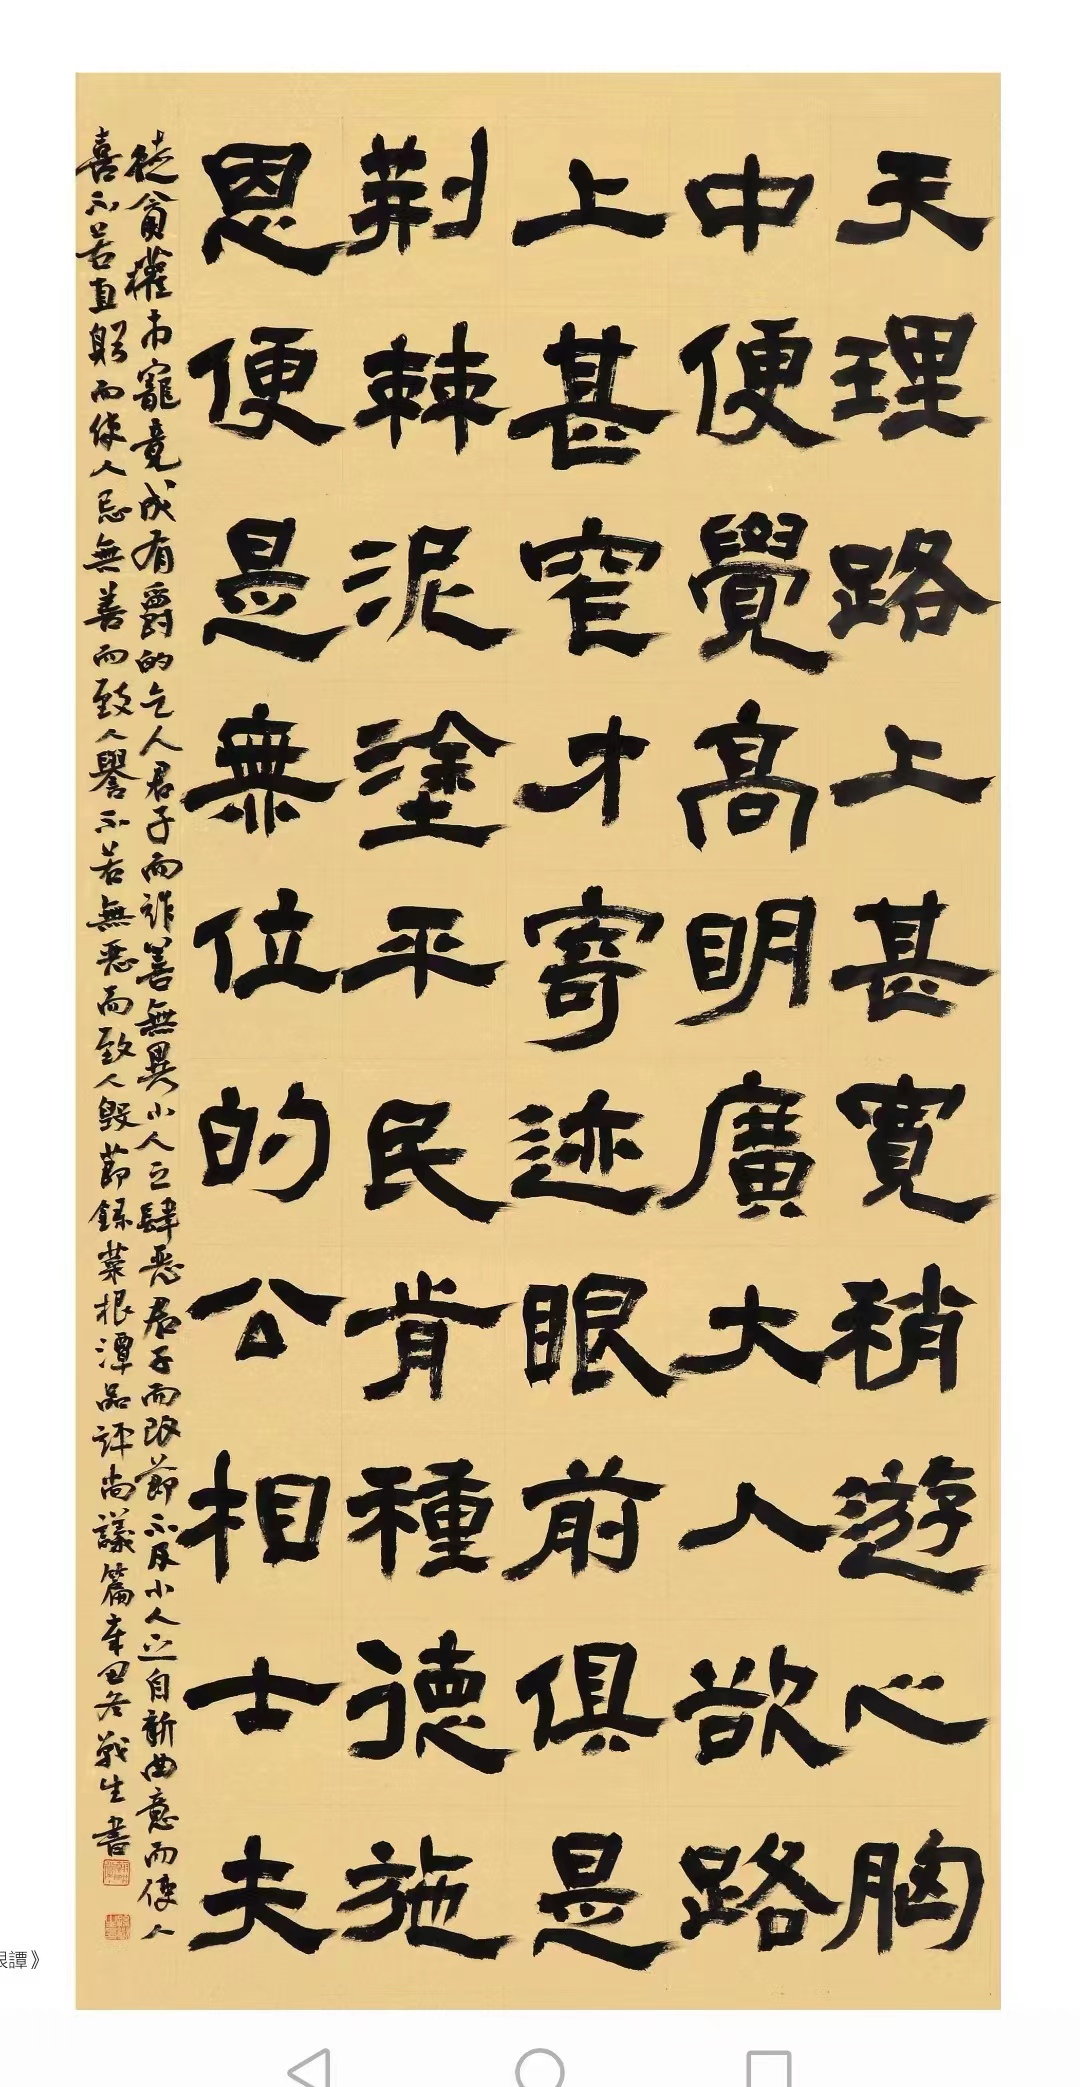 天理路上甚寬稍遊心胸
中便覺高明廣大人欲路
上甚窄才寄迹眼前俱是
荆棘泥塗平民肯種德施
恩便是無位的公相士夫
徒貪權市寵竟成有爵的乞人君子而詐善無異小人之肆惡君子而改節不及小人之自新曲意而使人
喜不若直躬而使人忌無善而致人譽不若無惡而致人毀節錄菜根潭品評尚議篇辛丑冬戰生書
根譚》